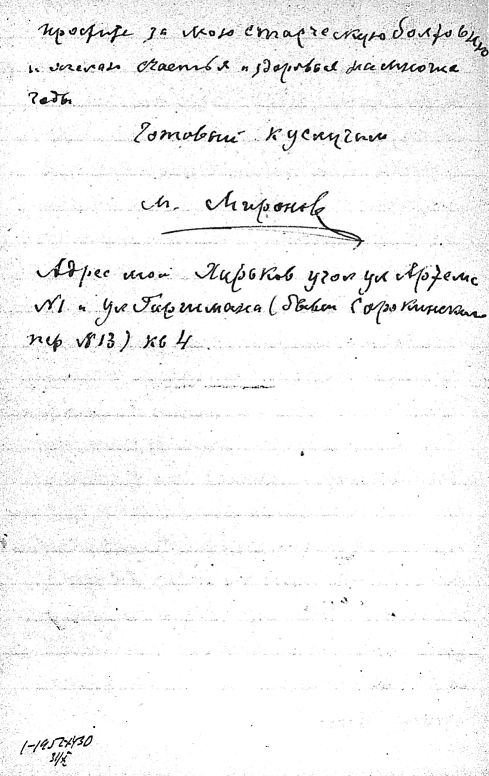 простите за мою старческую болтовню
и желаю счастья и здоровья на многие
годы
Готовый к услугам
М. Миронов
Адрес мой Харьков угол ул Артема
№1 и ул Гиршмана (бывш Сорокинский
пер №13) кв 4